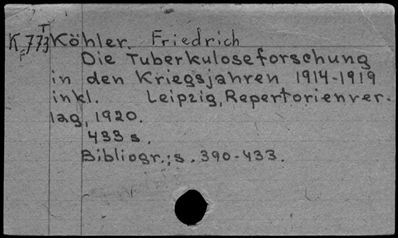 T
K773 Köhler, Friedrich
F
Die Tuberkuloseforschung
in den Kriegsjahren 1914-1919
inkl. Leipzig, Repertorienver-
lag, 1920.
433 s.
Bibliogr.; s. 390-433.